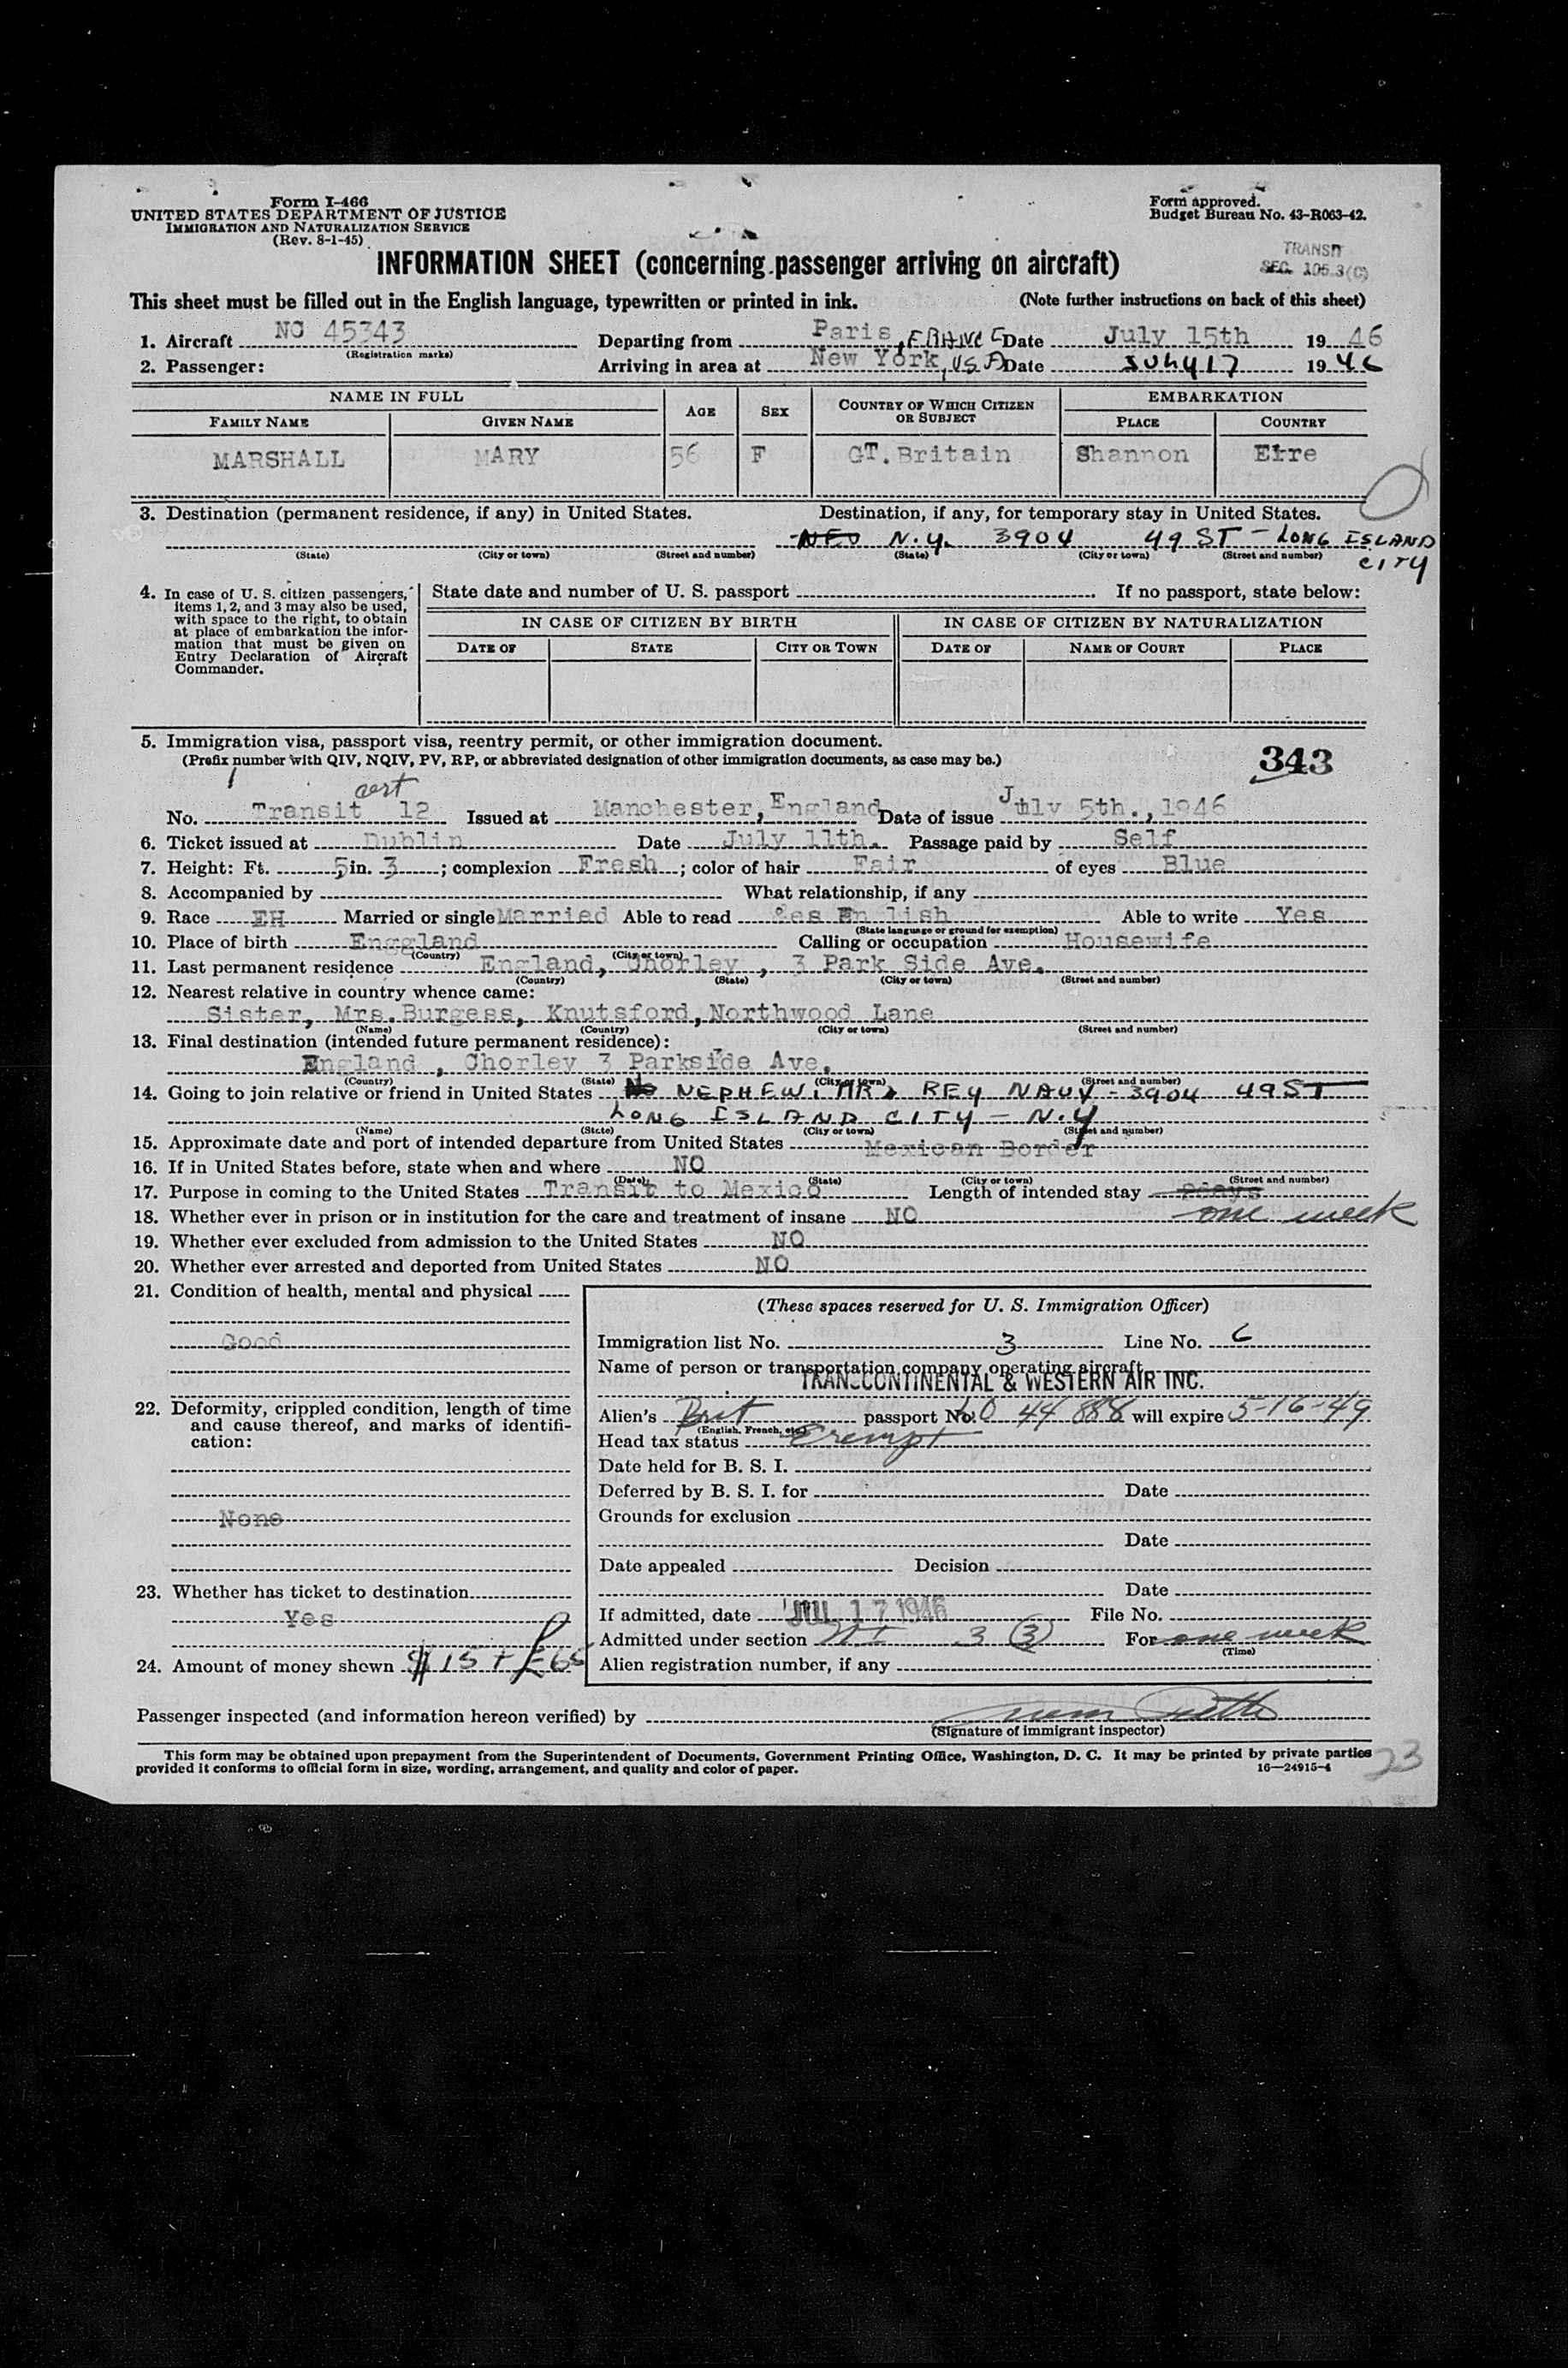 Form I-466
UNITED STATES DEPARTMENT OF JUSTICE
IMMIGRATION AND NATURALIZATION SERVICE
(Rev. 8-1-45)
Form approved.
Budget Bureau No. 43-R063-42.
INFORMATION SHEET (concerning passenger arriving on aircraft)
TRANSIT
SEC. 105.3(C)
This sheet must be filled out in the English language, typewritten or printed in ink. (Note further instructions on back of this sheet)
1. Aircraft NC 45343 Departing from Paris, FRANCE Date July 15th 1946
(Registration marks)
2. Passenger: Arriving in area at New York, USA Date JULY 17 1946
NAME IN FULL AGE SEX COUNTRY OF WHICH CITIZEN OR SUBJECT EMBARKATION
FAMILY NAME GIVEN NAME PLACE COUNTRY
MARSHALL MARY 56 F GT. Britain Shannon Eire
3. Destination (permanent residence, if any) in United States. Destination, if any, for temporary stay in United States.
N.Y. 3904 49 ST - LONG ISLAND
CITY
(State) (City or town) (Street and number) (State) (City or town) (Street and number)
4. In case of U. S. citizen passengers, items 1, 2, and 3 may also be used, with space to the right, to obtain at place of embarkation the information that must be given on Entry Declaration of Aircraft Commander.
State date and number of U. S. passport If no passport, state below:
IN CASE OF CITIZEN BY BIRTH IN CASE OF CITIZEN BY NATURALIZATION
DATE OF STATE CITY OR TOWN DATE OF NAME OF COURT PLACE
5. Immigration visa, passport visa, reentry permit, or other immigration document.
(Prefix number with QIV, NQIV, PV, RP, or abbreviated designation of other immigration documents, as case may be.)
343
cert
No. Transit 12 Issued at Manchester, England Date of issue July 5th., 1946
6. Ticket issued at Dublin Date July 11th. Passage paid by Self
7. Height: Ft. 5 in. 3 ; complexion Fresh ; color of hair Fair of eyes Blue
8. Accompanied by What relationship, if any
9. Race EH Married or single Married Able to read English Able to write Yes
(State language or ground for exemption)
10. Place of birth Enggland Calling or occupation Housewife
(Country) (City or town)
11. Last permanent residence England, Chorley, 3 Park Side Ave.
(Country) (State) (City or town) (Street and number)
12. Nearest relative in country whence came:
Sister, Mrs.Burgess, Knutsford, Northwood Lane
(Name) (Country) (City or town) (Street and number)
13. Final destination (intended future permanent residence):
England, Chorley 3 Parkside Ave.
(Country) (State) (City or town) (Street and number)
14. Going to join relative or friend in United States No NEPHEW. MR. REY NAUY - 3904 49 ST
LONG ISLAND CITY - N.Y
(Name) (State) (City or town) (Street and number)
15. Approximate date and port of intended departure from United States Mexican Border
16. If in United States before, state when and where NO
(Date) (State) (City or town) (Street and number)
17. Purpose in coming to the United States Transit to Mexico Length of intended stay
one week
18. Whether ever in prison or in institution for the care and treatment of insane NO
19. Whether ever excluded from admission to the United States NO
20. Whether ever arrested and deported from United States NO
21. Condition of health, mental and physical
Good
22. Deformity, crippled condition, length of time and cause thereof, and marks of identification:
None
23. Whether has ticket to destination
Yes
24. Amount of money shown $15 + £65
(These spaces reserved for U. S. Immigration Officer)
Immigration list No. 3 Line No. 6
Name of person or transportation company operating aircraft
TRANSCONTINENTAL & WESTERN AIR INC.
Alien's Brit passport No. LO 44 888 will expire 5-16-49
(English, French, etc.)
Head tax status Exempt
Date held for B. S. I.
Deferred by B. S. I. for Date
Grounds for exclusion
Date
Date appealed Decision
Date
If admitted, date JUL 17 1946 File No.
Admitted under section 3 (3) For one week
(Time)
Alien registration number, if any
Passenger inspected (and information hereon verified) by
(Signature of immigrant inspector)
This form may be obtained upon prepayment from the Superintendent of Documents, Government Printing Office, Washington, D. C. It may be printed by private parties
provided it conforms to official form in size, wording, arrangement, and quality and color of paper. 16—24915-4
23